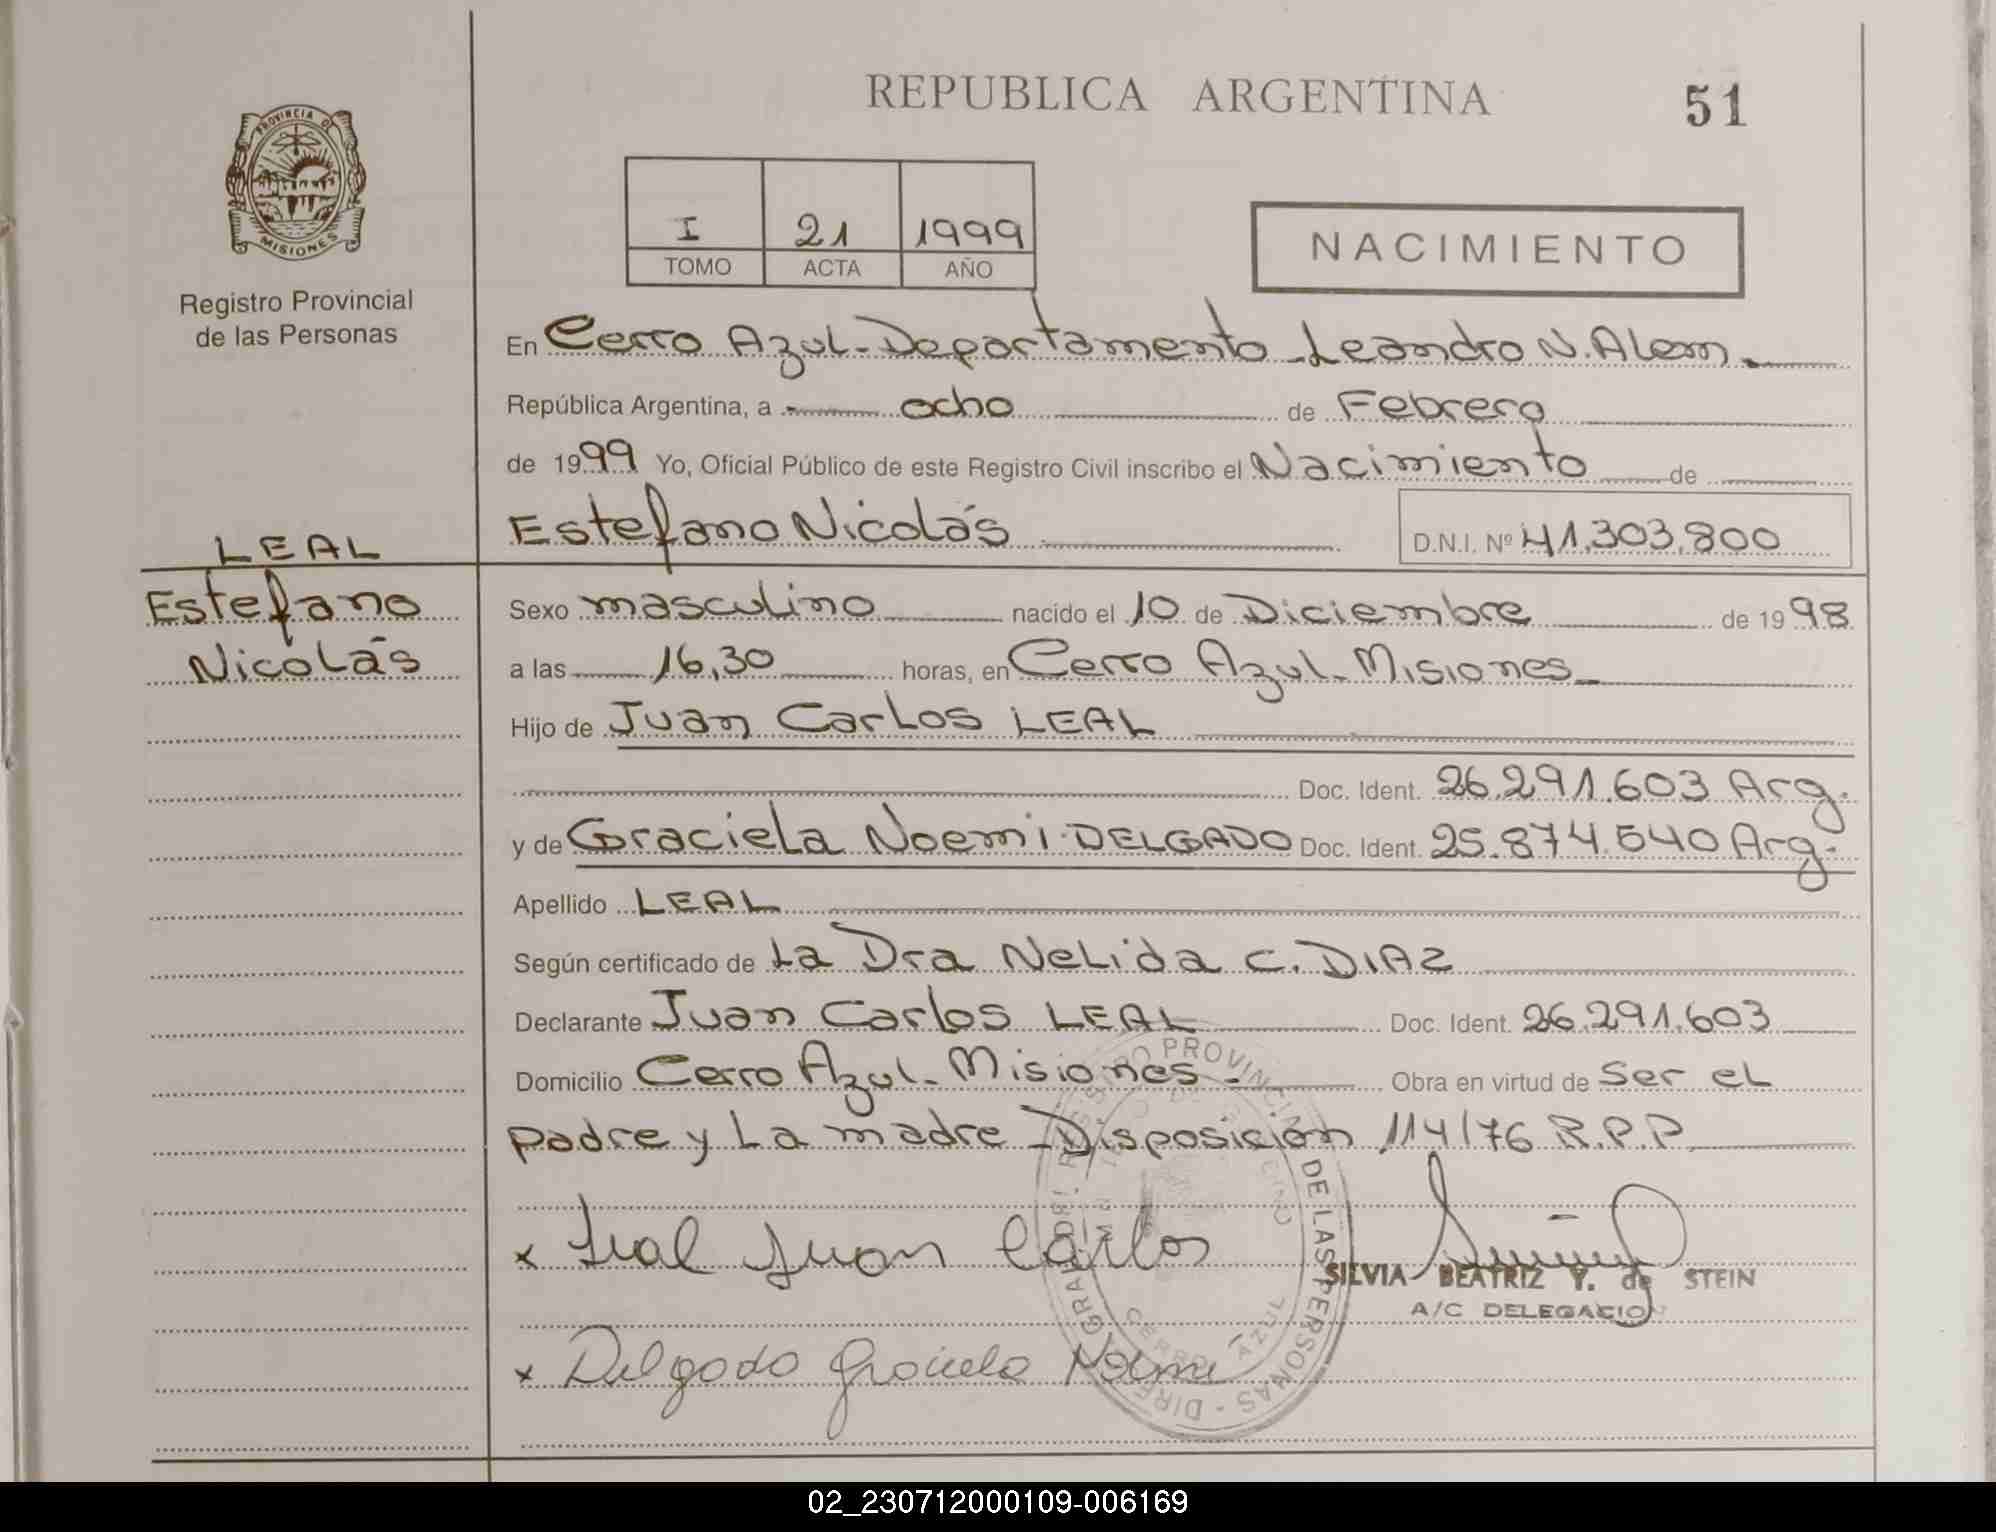 REPUBLICA ARGENTINA
51
PROVINCIA DE
MISIONES
Registro Provincial
de las Personas
I 21 1999
TOMO ACTA AÑO
NACIMIENTO
En Cerro Azul - Departamento Leandro N. Alem.
República Argentina, a ocho de Febrero
de 1999 Yo, Oficial Público de este Registro Civil inscribo el Nacimiento de
Estefano Nicolás D.N.I. Nº 41.303.800
LEAL
Estefano
Nicolás
Sexo masculino nacido el 10 de Diciembre de 1998
a las 16,30 horas, en Cerro Azul - Misiones
Hijo de Juan Carlos LEAL
Doc. Ident. 26.291.603 Arg.
y de Graciela Noemi DELGADO Doc. Ident. 25.874.540 Arg.
Apellido LEAL
Según certificado de La Dra Nelida C. DIAZ
Declarante Juan Carlos LEAL Doc. Ident. 26.291.603
Domicilio Cerro Azul - Misiones - Obra en virtud de Ser el
padre y La madre - Disposición 114/76 R.P.P
x Leal Juan Carlos
SILVIA BEATRIZ Y. de STEIN
A/C DELEGACION
x Delgado Graciela Noemi
PROVINCIAL DE LAS PERSONAS
CERRO AZUL
02_230712000109-006169